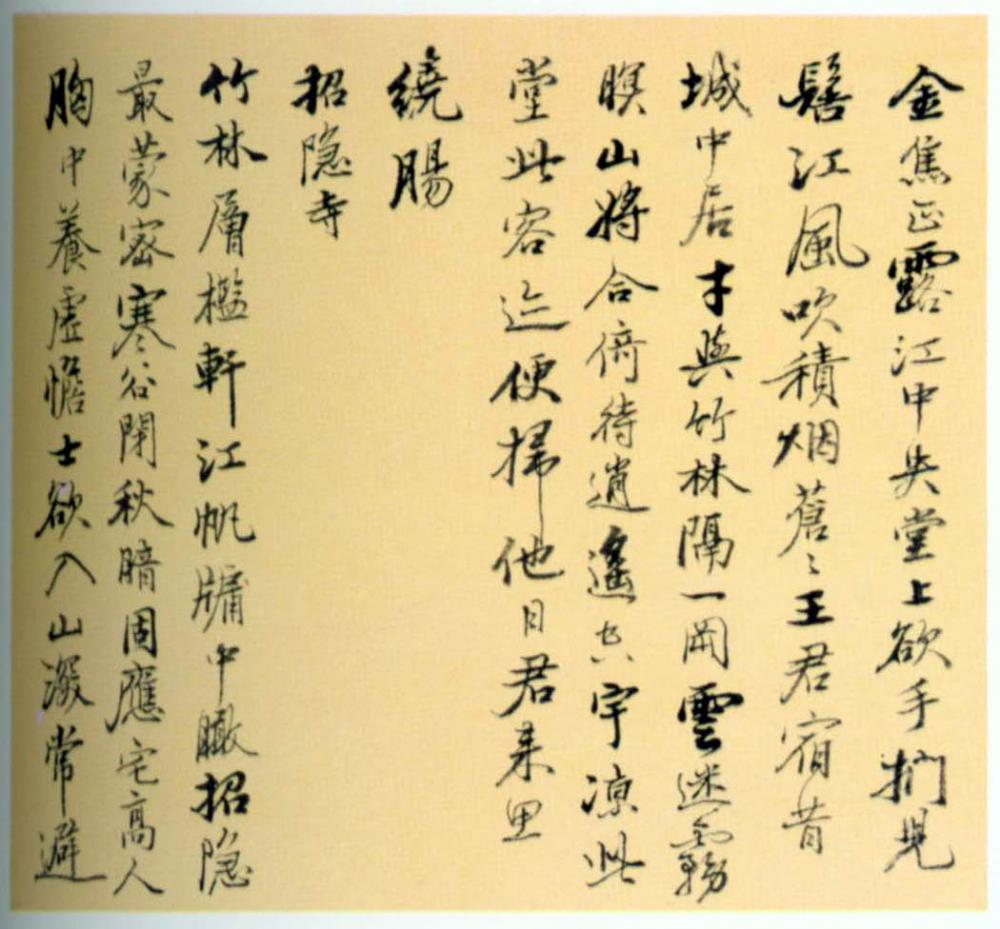 金焦正露江中央堂上欲手捫
鬐江風吹積烟蒼〻王君宿昔
城中居才與竹林隔一岡雲迷霧
暝山將合倚待逍遙空宇涼此
堂此客迹便掃他日君来思
繞腸
招隱寺
竹林層檻軒江帆牖中瞰招隱
最蒙密寒谷閉秋暗固應宅高人
胸中養虛憺士欲入山深常避